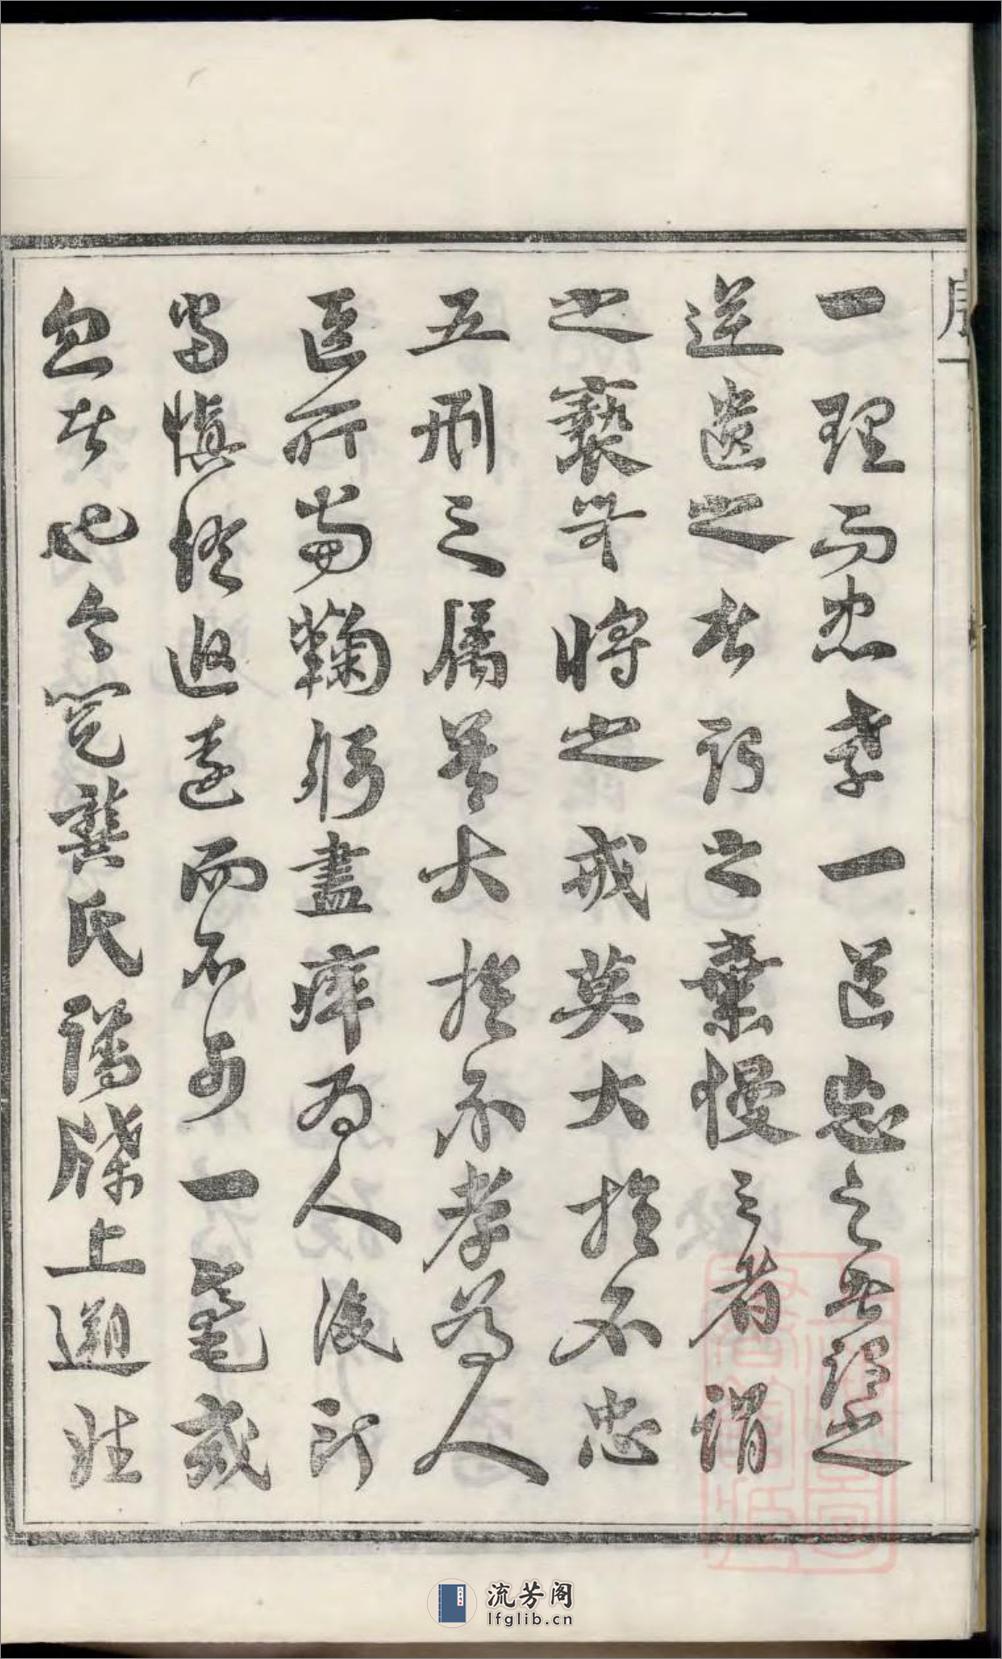 序一
一理而忠孝一道忘之者謂之
逆遺之者謂之棄慢之者謂
之褻無將之戒莫大於不忠
五刑之屬莫大於不孝為人
臣所當鞠躬盡瘁為人後所
當慎終追遠而不可一毫或
忽者也今覽龔氏譜牒上遡
流芳阁
lfglib.cn